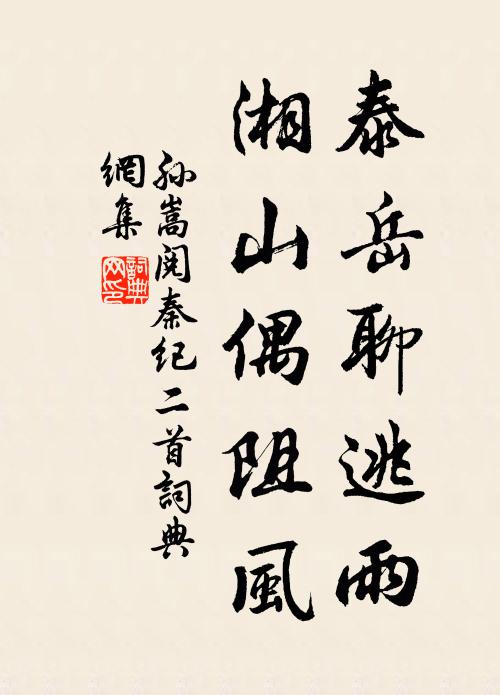 泰岳聊逃雨
湘山偶阻風
孙嵩阅秦纪二首詞典
網集
詞典
网印